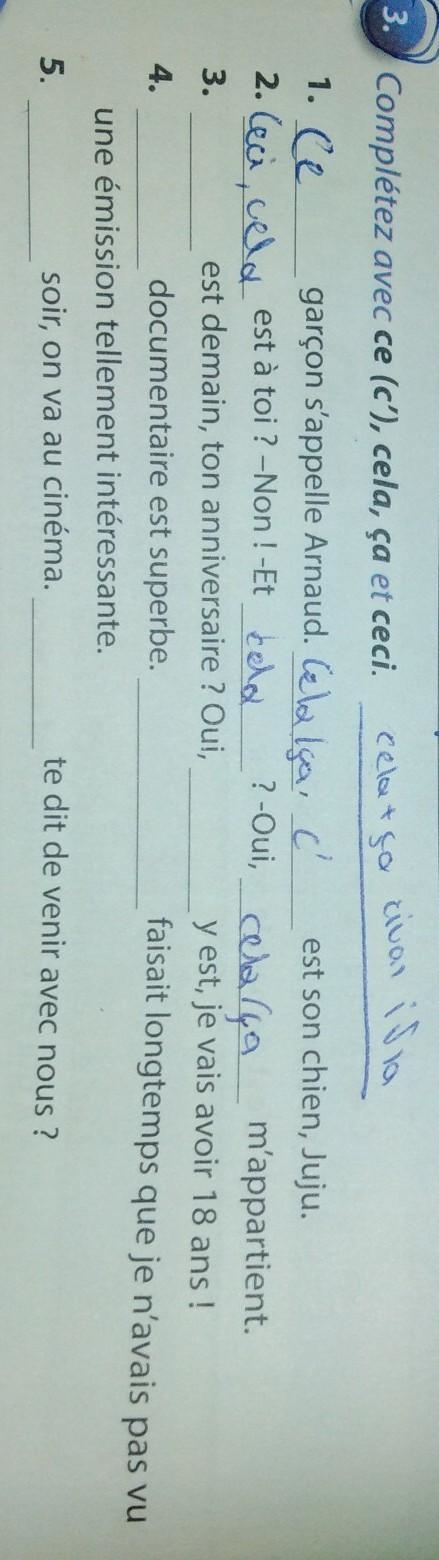 3. Complétez avec ce (c'), cela, ça et ceci. cela + ça
1. Ce garçon s'appelle Arnaud. Cela/ça, c' est son chien, Juju.
2. Ceci, cela est à toi ? –Non ! -Et cela ? -Oui, cela/ça m'appartient.
3. ________ est demain, ton anniversaire ? Oui, ________ y est, je vais avoir 18 ans !
4. ________ documentaire est superbe. ________ faisait longtemps que je n'avais pas vu
une émission tellement intéressante.
5. ________ soir, on va au cinéma. ________ te dit de venir avec nous ?